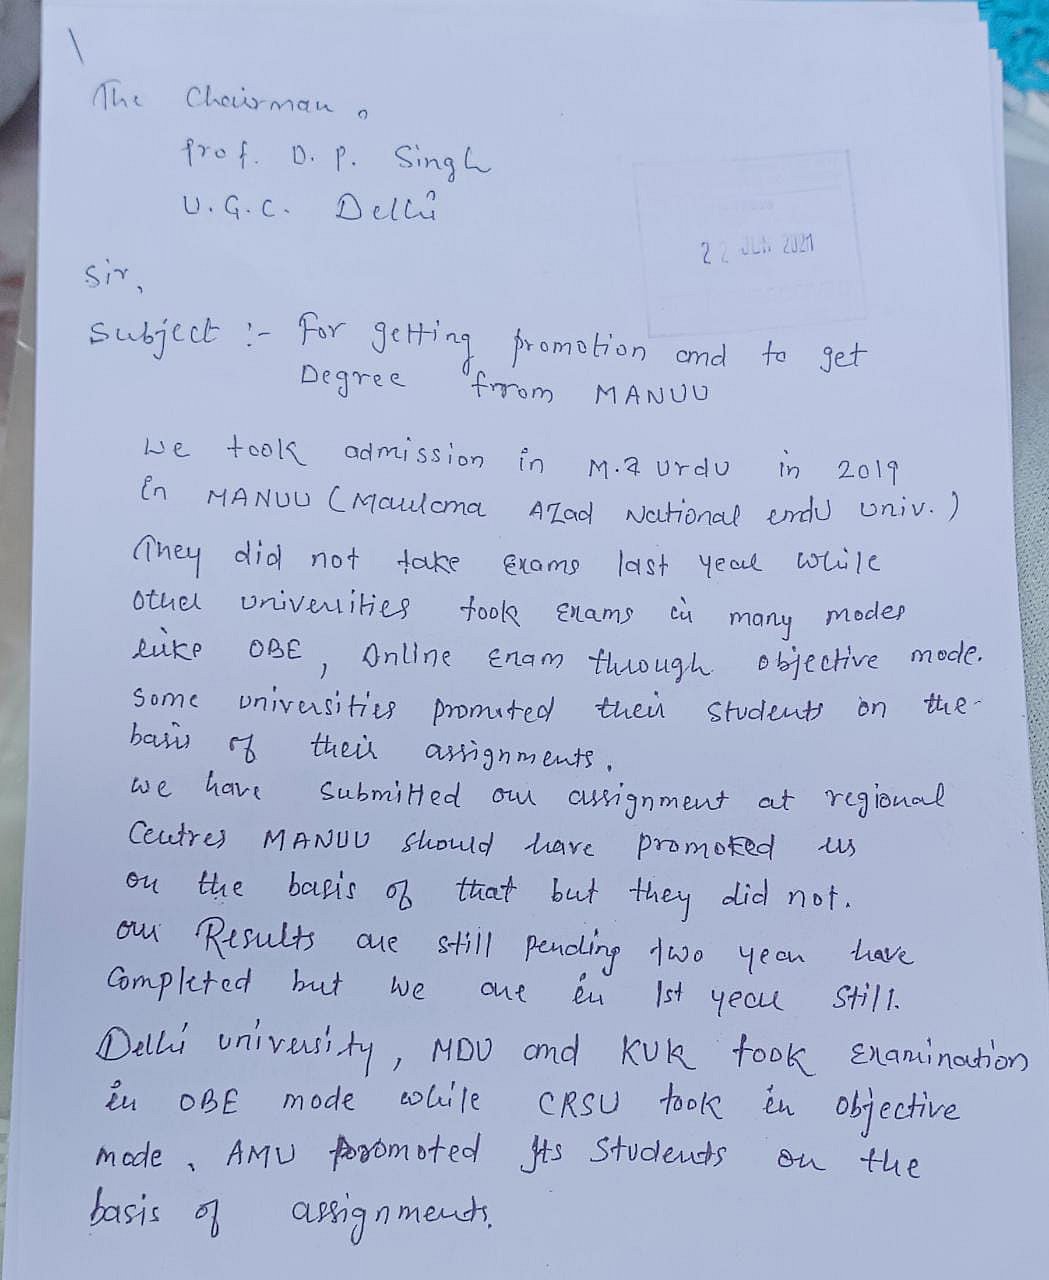 The Chairman,
Prof. D. P. Singh
U.G.C. Delhi
22 JUN 2021
Sir,
Subject :- For getting promotion and to get
Degree from MANUU
We took admission in M.A Urdu in 2019
in MANUU (Maulana AZad National Urdu Univ.)
They did not take Exams last year while
other universities took Exams in many modes
like OBE, Online Exam through objective mode.
Some universities promoted their students on the
basis of their assignments.
we have Submitted our assignment at regional
Centres MANUU should have promoted us
on the basis of that but they did not.
our Results are still pending two year have
Completed but we are in 1st year still.
Delhi university, MDU and KUK took Examination
in OBE mode while CRSU took in objective
mode, AMU promoted Its Students on the
basis of assignments.